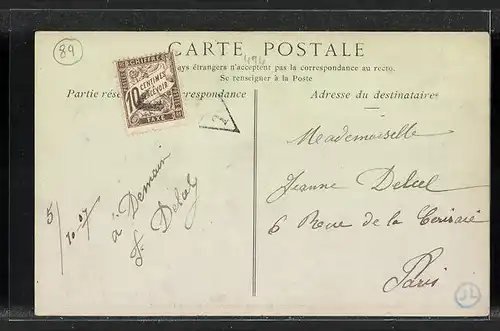 89
CARTE POSTALE
494
pays étrangers n'acceptent pas la correspondance au recto.
Se renseigner à la Poste
Partie rése correspondance
Adresse du destinataire
CHIFFRE
10 CENTIMES
A PERCEVOIR
TAXE
Mademoiselle
Jeanne Delcel
6 Rue de la Cerisaie
Paris
à Demain
J. Delcel
5/10-07
JL